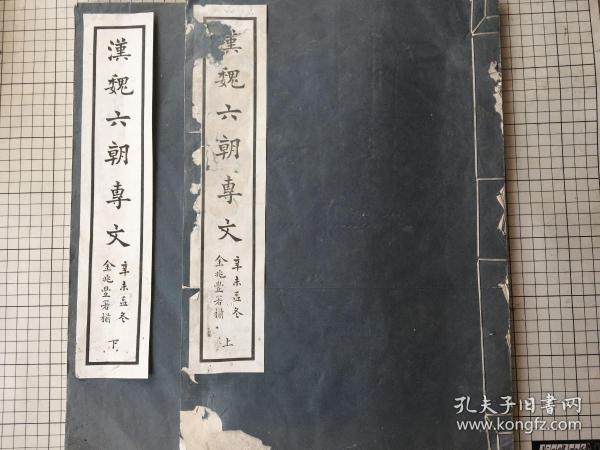 漢魏六朝専文
辛未孟冬
金兆豐署檢
下
漢魏六朝専文
辛未孟冬
金兆豐署檢
上
孔夫子旧书网
kongfz.com